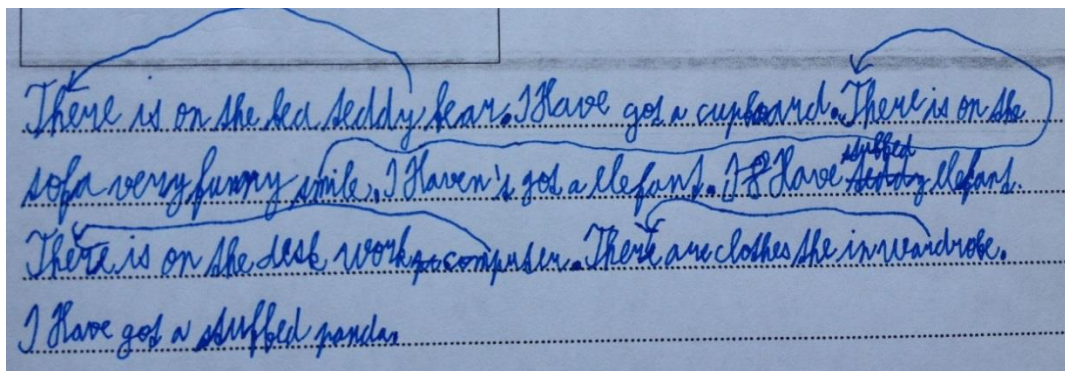 There is on the bed teddy bear. I Have got a cupboard. There is on the
sofa very funny smile. I Haven't got a elefant. I Have stuffed elefant.
There is on the desk work computer. There are clothes the in wardrobe.
I Have got a stuffed panda.